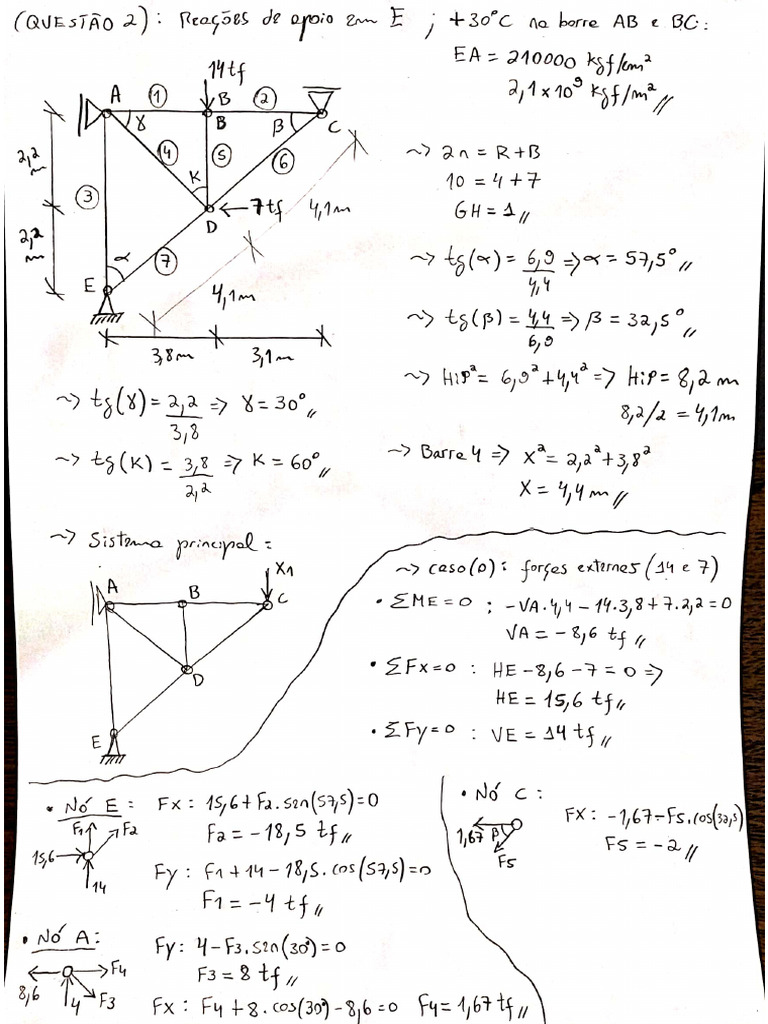 (QUESTÃO 2): Reações de apoio em E ; +30°C na barra AB e BC:
EA = 210000 kgf/cm²
2,1x10⁹ kgf/m²//
14tf
A ① B ② C
B
γ β
④ ⑤ ⑥
K
③
2,2 m
2,2 m
D ← 7tf
4,1m
α ⑦
E
4,1m
3,8m 3,1m
~> 2n = R+B
10 = 4+7
GH = 1//
~> tg(α) = 6,9/4,4 => α = 57,5°//
~> tg(β) = 4,4/6,9 => β = 32,5°//
~> Hip² = 6,9² + 4,4² => Hip = 8,2 m
8,2/2 = 4,1m//
~> tg(γ) = 2,2/3,8 => γ = 30°//
~> tg(K) = 3,8/2,2 => K = 60°//
~> Barra 4 => X² = 2,2² + 3,8²
X = 4,4 m//
~> Sistema principal:
X1
A B C
D
E
~> caso(0): forças externas (14 e 7)
• ΣME=0 : -VA.4,4 -14.3,8 + 7.2,2 = 0
VA = -8,6 tf//
• ΣFx=0 : HE -8,6 -7 = 0 =>
HE = 15,6 tf//
• ΣFy=0 : VE = 14 tf//
• Nó E: Fx: 15,6 + F2.sen(57,5) = 0
F2 = -18,5 tf//
F1 F2
15,6
14
Fy: F1 + 14 - 18,5.cos(57,5) = 0
F1 = -4 tf//
• Nó A: Fy: 4 - F3.sen(30°) = 0
F3 = 8 tf//
8,6 4 F3 F4
Fx: F4 + 8.cos(30°) - 8,6 = 0 F4 = 1,67 tf//
• Nó C:
1,67 β F5
FX: -1,67 - F5.cos(32,5)
F5 = -2//